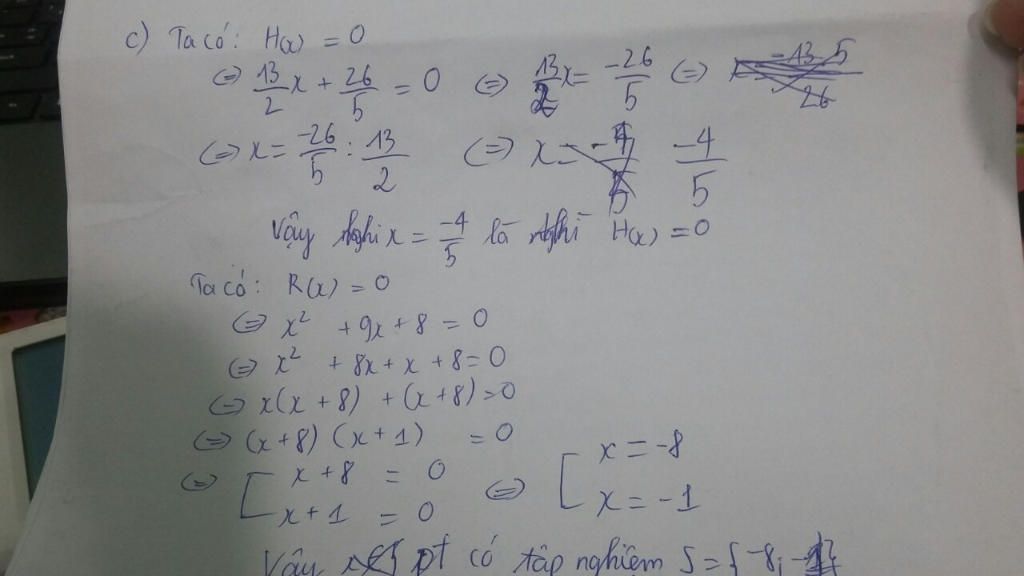 c) Ta có: H(x) = 0
(=) 13/2 x + 26/5 = 0 (=) 13/2 x = -26/5 (=)
(=) x = -26/5 : 13/2 (=) x = -4/5
Vậy x = -4/5 là H(x) = 0
Ta có: R(x) = 0
(=) x² + 9x + 8 = 0
(=) x² + 8x + x + 8 = 0
(=) x(x + 8) + (x + 8) = 0
(=) (x + 8) (x + 1) = 0
(=) [ x + 8 = 0 (=) [ x = -8
x + 1 = 0 x = -1
Vậy pt có tập nghiệm S = { -8; -1}